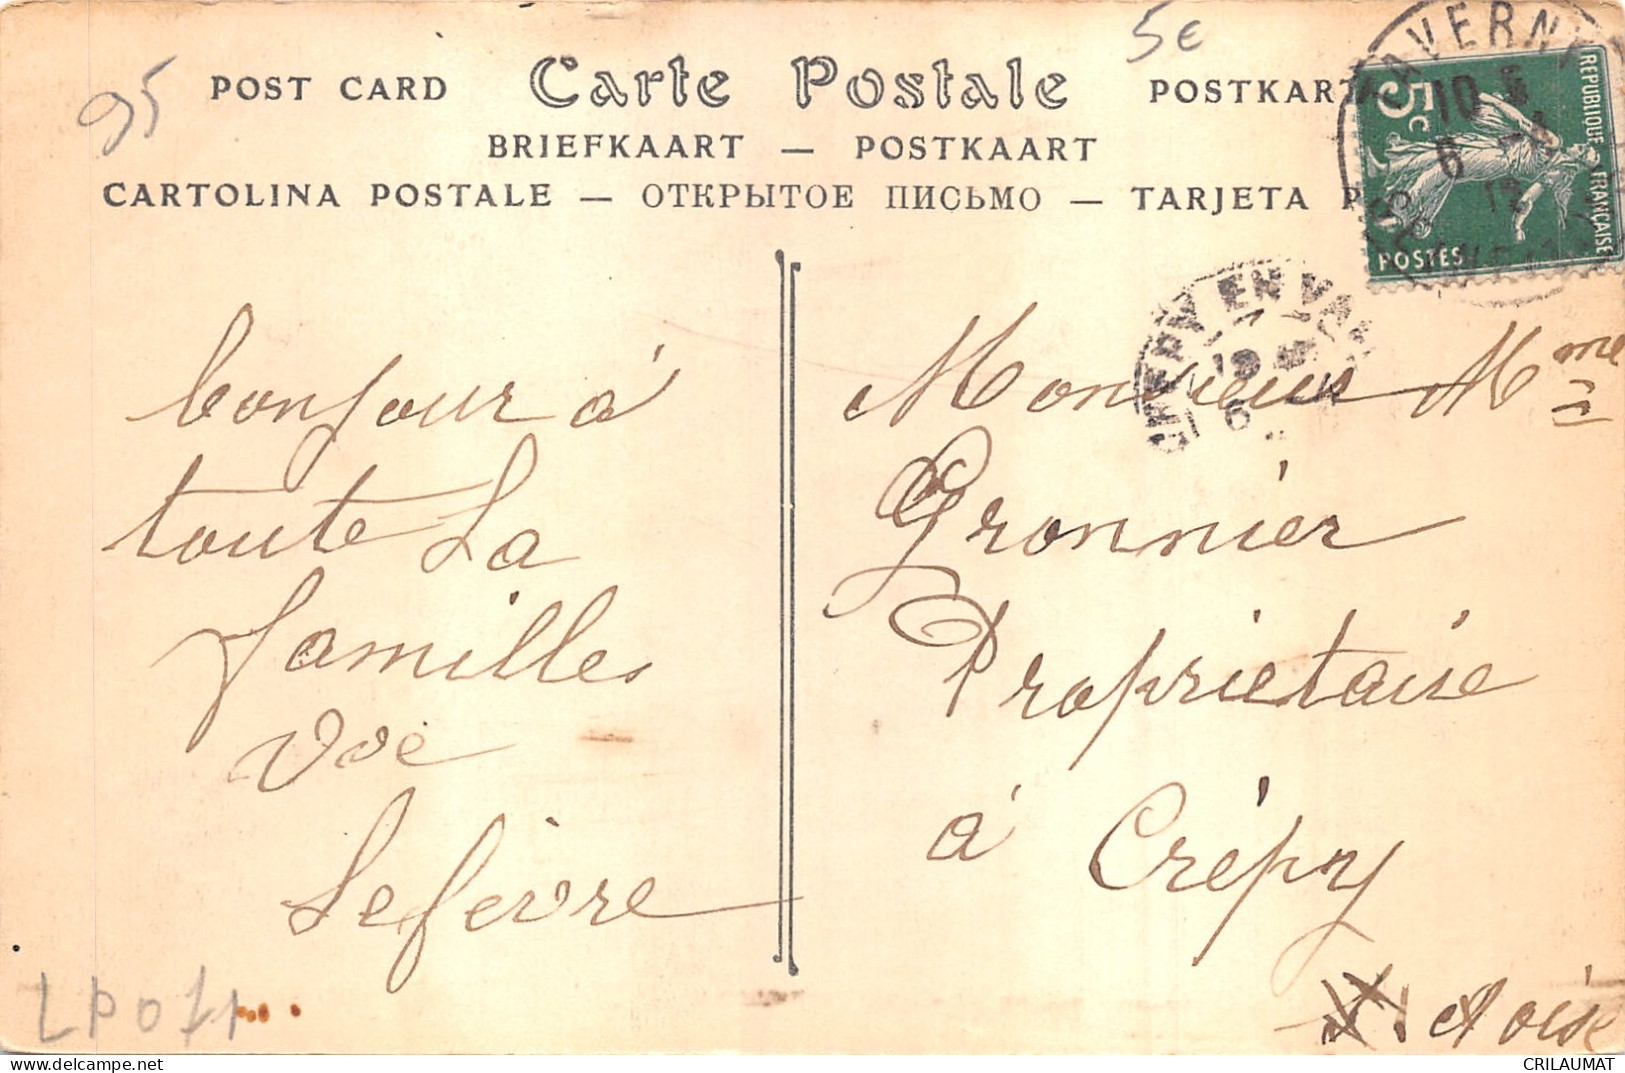 5€
95
POST CARD Carte Postale POSTKART
BRIEFKAART — POSTKAART
CARTOLINA POSTALE — ОТКРЫТОЕ ПИСЬМО — TARJETA P
TAVERNY
10
6 12
REPUBLIQUE FRANÇAISE
5c
POSTES
CREPY EN VAL
19
6
bonjour à
toute La
familles
Vve
Lefèvre
Monsieur Mme
Gronnier
Propriétaire
à Crépy
oise
LP071
CRILAUMAT